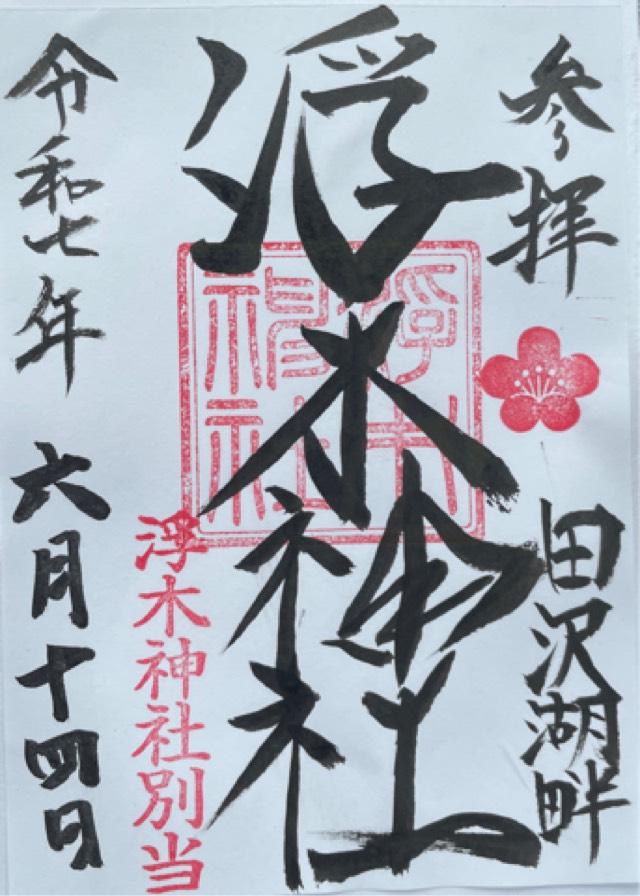 参拝
田沢湖畔
浮木神社
浮木神社別当
令和七年 六月十四日